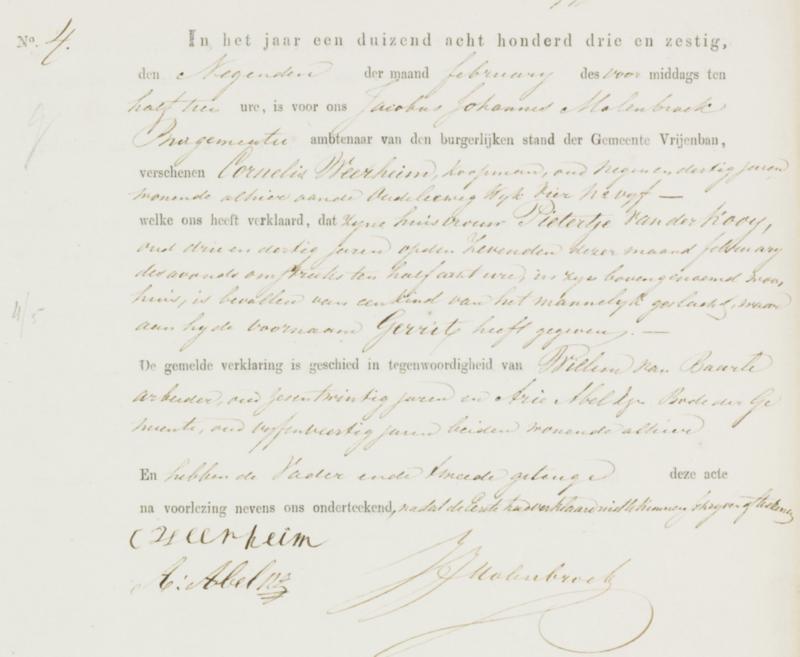 No. 4.
In het jaar een duizend acht honderd drie en zestig,
den Negenden der maand february des voor middags ten
half tien ure, is voor ons Jacobus Johannes Molenbroek
Burgemeester ambtenaar van den burgerlijken stand der Gemeente Vrijenban,
verschenen Cornelis Weerheim, koopman, oud negen en dertig jaren
wonende alhier aan de Oudeleeweg Wyk vier No vyf —
welke ons heeft verklaard, dat zyne huisvrouw Pietertje van der Kooy,
oud drie en dertig jaren op den zevenden dezer maand february
des avonds om streeks ten half acht ure, in zyn bovengenoemd woon
huis, is bevallen van een kind van het mannelyk geslacht, waar
aan hy de voornaam Gerrit heeft gegeven. —
De gemelde verklaring is geschied in tegenwoordigheid van Willem van Baarle
arbeider, oud zesentwintig jaren en Arie Abel Bode der Ge
meente, oud vyfenveertig jaren beiden wonende alhier
En hebben de Vader en de tweede getuige deze acte
na voorlezing nevens ons onderteekend, nadat de Eerste had verklaard niet te kunnen schryven of teekenen
C Weerheim
A: Abel
JJMolenbroek
4/5